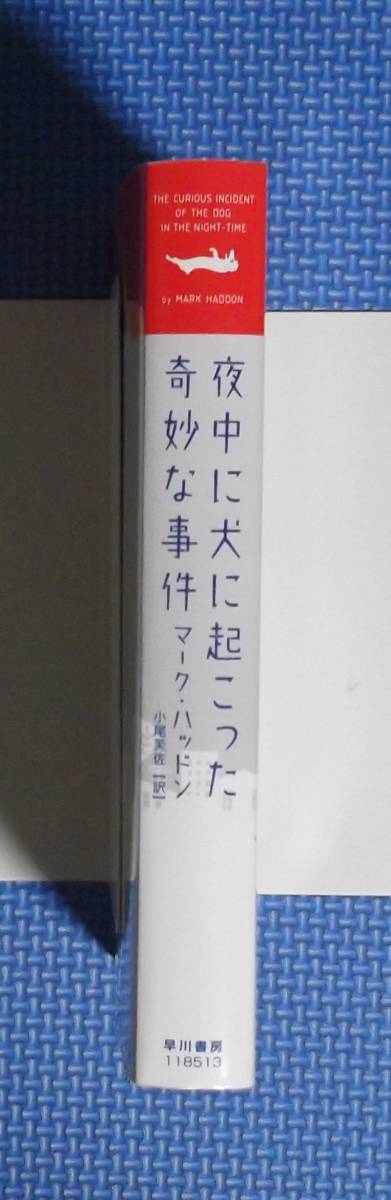 THE CURIOUS INCIDENT
OF THE DOG
IN THE NIGHT-TIME
by MARK HADDON
夜中に犬に起こった
奇妙な事件
マーク・ハッドン
小尾芙佐【訳】
早川書房
118513